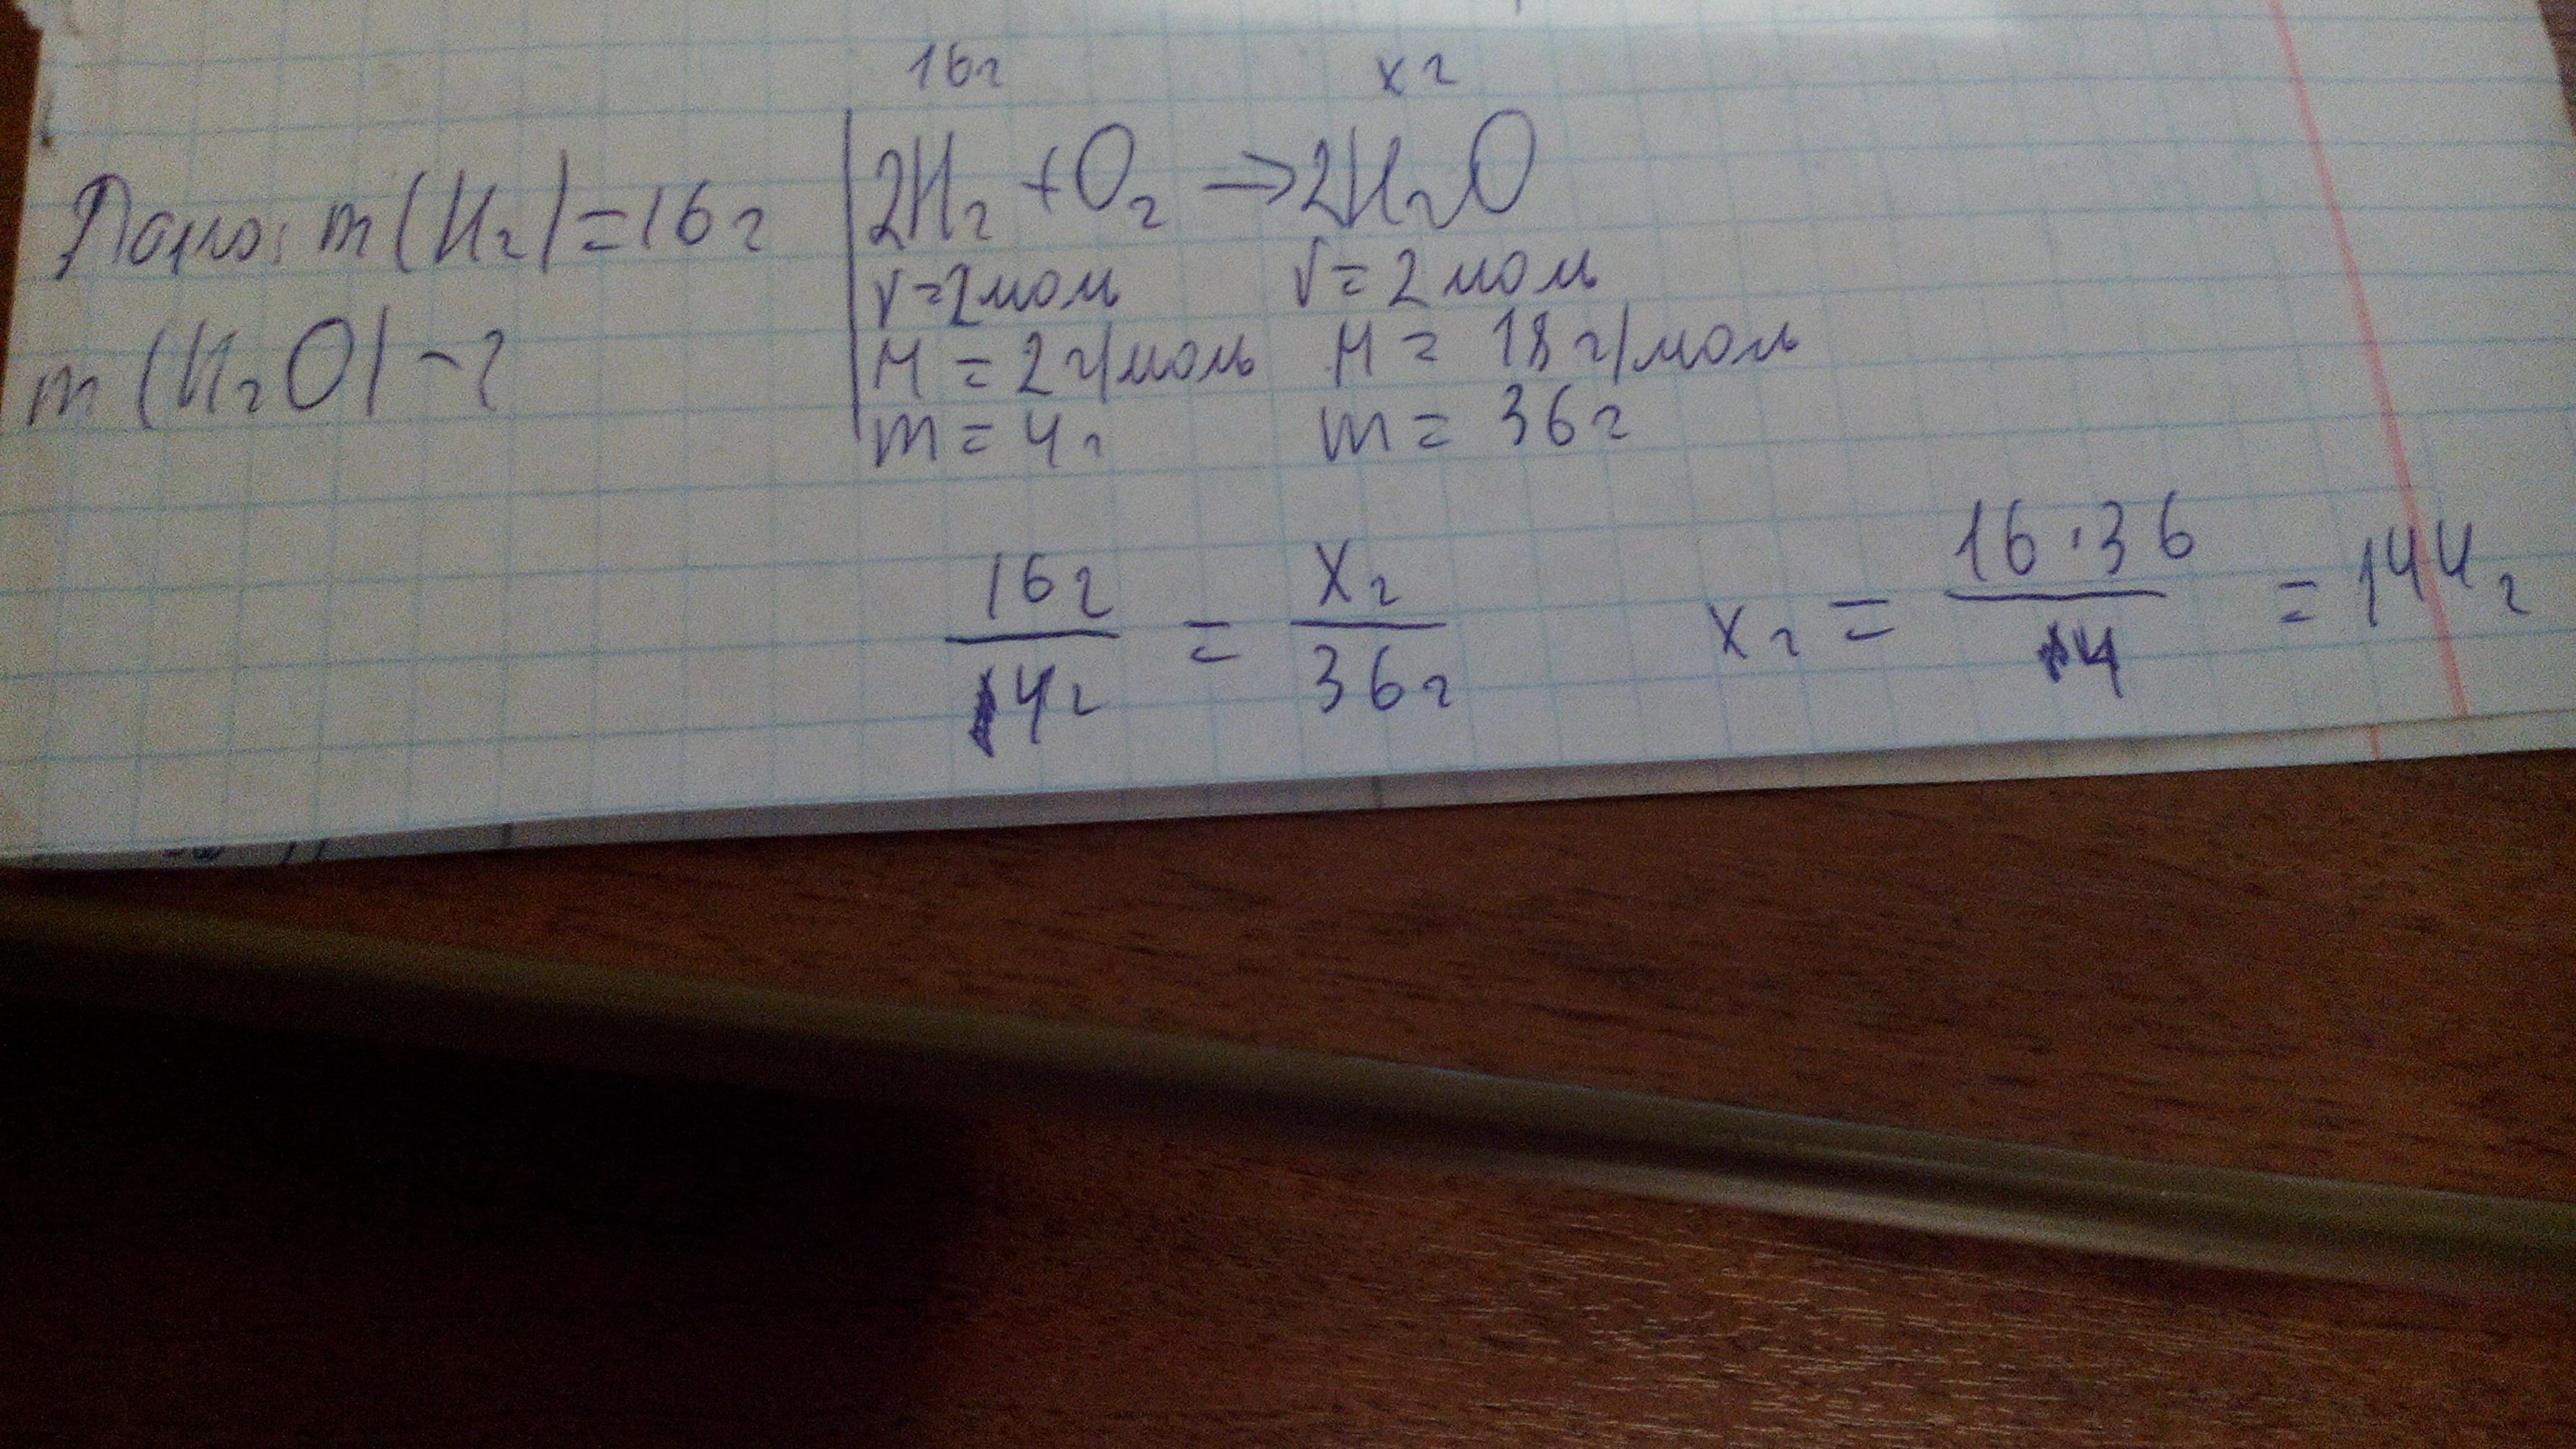 16г х г
Дано: m(H₂)=16г 2H₂ + O₂ → 2H₂O
m(H₂O) - ?
ν=2моль ν=2моль
M = 2г/моль M = 18г/моль
m = 4г m = 36г
16г/4г = Хг/36г хг = 16·36/4 = 144г